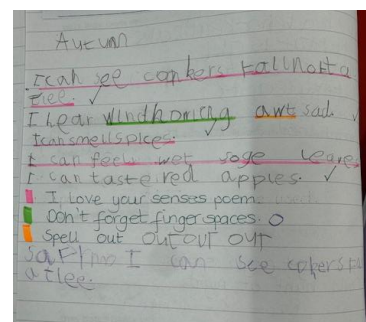 Autumn
I can see conkers fall not a
tree. ✓
I hear windhowing awt sad. ✓
I can smell spices.
I can feel wet soge leave
I can tasteired apples. ✓
I Love your senses poem
Don't forget finger spaces. O
Spell out out out out
I can see
atree.